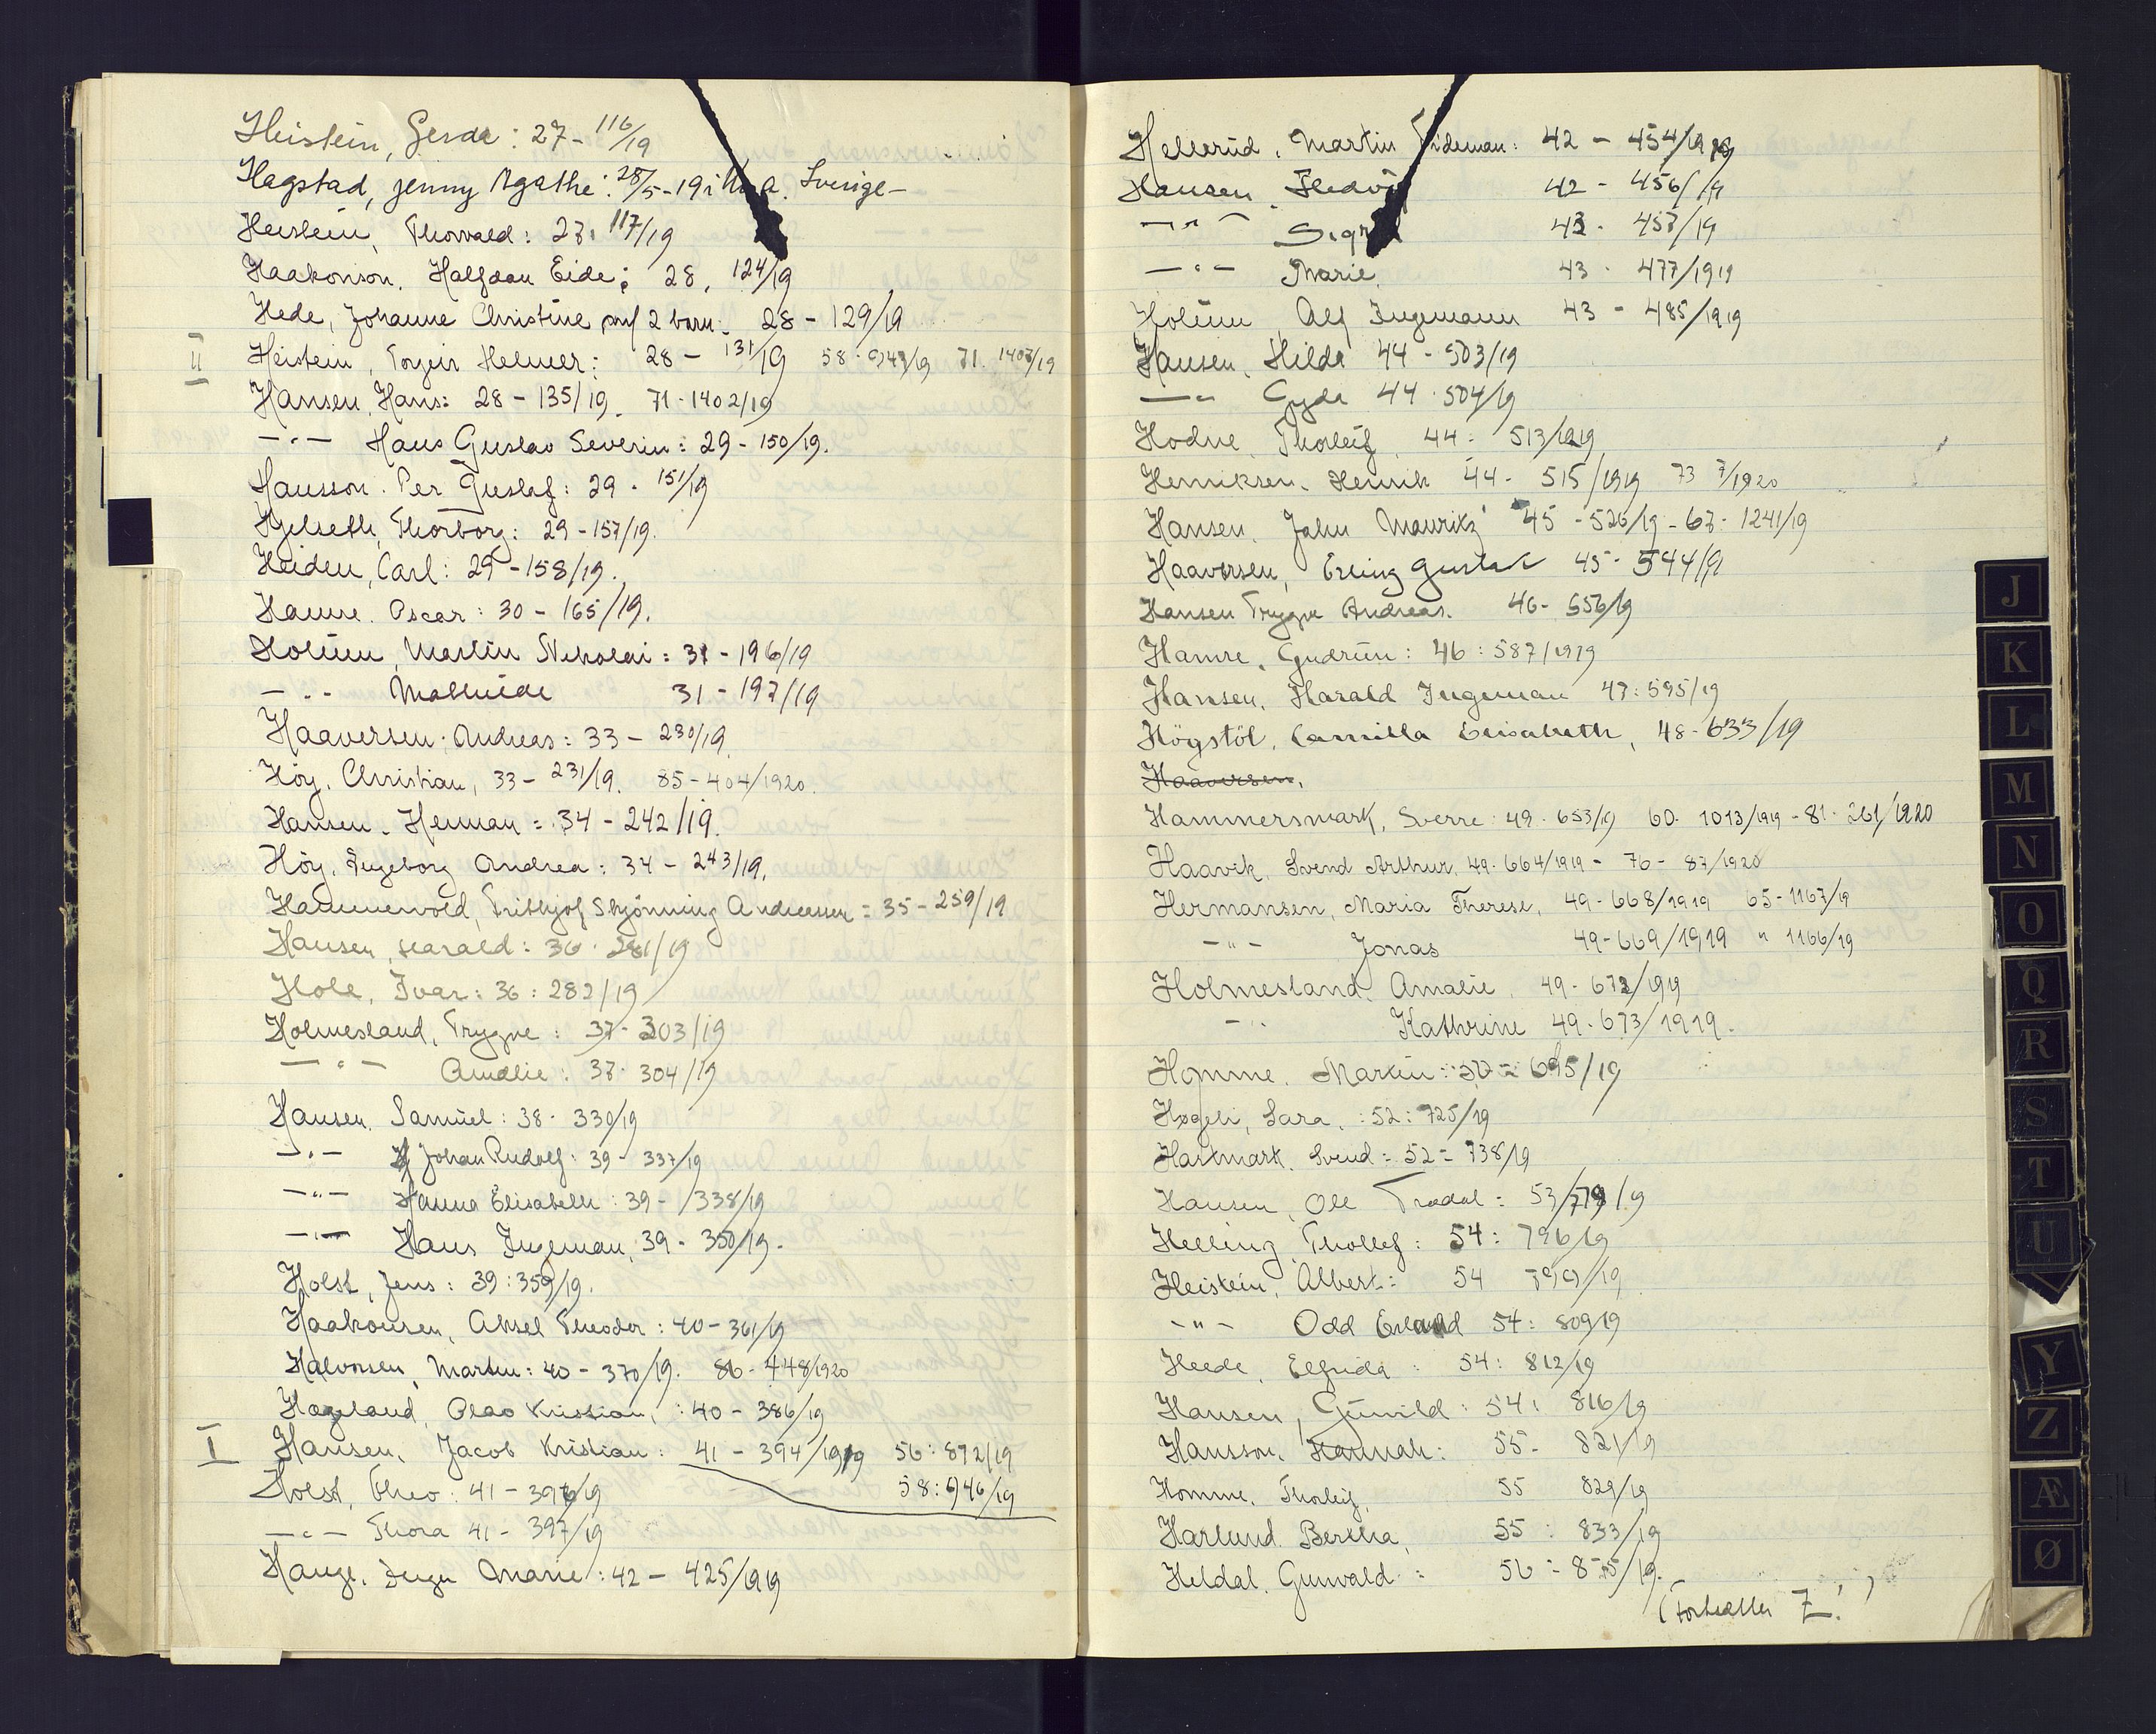 Heistein, Gerda: 27- 116/19
Hagstad, Jenny Agathe: 28/5-19 i Sverige-
Heistein, Thorvald: 27. 117/19
Haakonson. Halfdan Eide: 28, 124/19
Hede, Johanne Christine 2 barn. 28 - 129/19
II Heistein, Torgeir Helmer: 28 - 131/19 58 - 947/19 71. 1403/19
Hansen, Hans: 28 - 135/19. 71-1402/19
-"- Hans Gustav Severin: 29 - 150/19.
Hansson. Per Gustaf: 29 - 151/19
Hjelseth, Thorborg: 29 - 157/19.
Heiden, Carl: 29 - 158/19.
Hamre. Oscar: 30 - 165/19.
Holum, Martin Nikolai: 31 - 196/19
-"- Mathilde 31 - 197/19
Haaversen. Andreas: 33 - 230/19.
Höy, Christian, 33 - 231/19. 85 - 404/1920.
Hansen. Herman: 34 - 242/19.
Höy, Ingeborg Andrea: 34 - 243/19.
Hammervold, Frithjof Skjönning Andreassen: 35 - 259/19
Hansen, Harald: 36 - 281/19
Hole, Ivar: 36: 282/19
Holmesland, Trygve: 37 - 303/19
-"- Amalie: 37 - 304/19
Hansen, Samuel: 38 - 330/19
-"- Johan Rudolf: 39 - 337/19
-"- Hanna Elisabeth: 39 - 338/19
-"- Hans Ingeman, 39 - 350/19.
Holst, Jens: 39: 359/19.
Haakonsen, Aksel Theodor: 40 - 361/19
Halvorsen, Martin: 40 - 370/19. 86 - 448/1920
Hageland, Olav Kristian,: 40 - 386/19
I Hansen, Jacob Kristian: 41 - 394/1919 56: 872/19
58: 946/19
Holst, Theo: 41 - 396/19
-"- Thora 41 - 397/19
Hauge, Inger Marie: 42 - 425/1919
Hellerud, Martin Tideman: 42 - 454/1919
Hansen, Hedvig 42 - 456/19
-"- Sigrid 42 - 457/19
-"- Marie. 43 - 477/1919
Holum, Alf Ingemann 43 - 485/1919
Hansen, Hilda 44 - 503/19
-"- Gyda 44 - 504/19
Hodne, Thorleif, 44: 513/1919
Henriksen, Henrik 44 - 515/1919 73 7/1920
Hansen, John Mauritz 45 - 526/19 - 67: 1241/19
Haaversen, Erling Gustav 45 - 544/19
Hansen Trygve Andreas. 46 - 556/19
Hamre, Gudrun: 46: 587/1919
Hansen, Harald Ingeman 47: 595/19
Högstöl, Camilla Elisabeth, 48 - 633/19
Haaversen,
Hammersmark, Sverre: 49 - 653/19 60. 1013/1919 - 81 - 261/1920
Haavik, Svend Arthur, 49 - 664/1919 - 76 - 87/1920
Hermansen, Maria Therese, 49 - 668/1919 65 - 1167/19
-"- Jonas 49 - 669/1919 " 1166/19
Holmesland, Amalie, 49 - 672/1919
-"- Kathrine 49 - 673/1919.
Homme, Martin: 50 - 695/19
Hogeli, Sara,: 52: 725/19
Hartmark, Svend: 52 = 738/19
Hansen, Ole Tradal: 53/779/19
Helling, Thollef: 54: 796/19
Heistein, Albert: 54 799/19
-"- Odd Erland 54: 809/19
Heede, Elfrida: 54: 812/19
Hansen, Gunvild: 54: 816/19
Hansson, Hannah: 55 - 821/19
Homme, Thorleif, 55 829/19
Harlund, Bertha, 55: 833/19
Heldal, Gunvald: 56: 875/19.
(Fortsettes Z!)